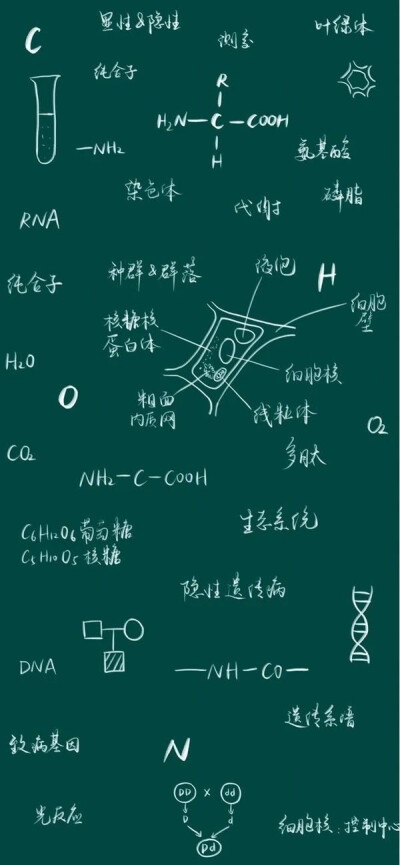 C
显性&隐性
测交
叶绿体
纯合子
R
H₂N—C—COOH
H
—NH₂
氨基酸
染色体
磷脂
代谢
RNA
种群&群落
液泡
H
纯合子
细胞
壁
核糖核
蛋白体
H₂O
细胞核
O
粗面
内质网
线粒体
O₂
CO₂
多肽
NH₂—C—COOH
生态系统
C₆H₁₂O₆葡萄糖
C₅H₁₀O₅核糖
隐性遗传病
DNA
—NH—CO—
遗传系谱
致病基因
N
DD × dd
光反应
D d
细胞核:控制中心
Dd